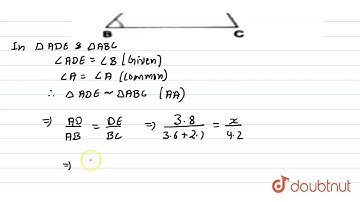 B C
In △ADE & △ABC
∠ADE = ∠B (Given)
∠A = ∠A (common)
∴ △ADE ~ △ABC (AA)
⇒ AD/AB = DE/BC ⇒ 3.8/3.6+2.1 = x/4.2
⇒
doubtnut